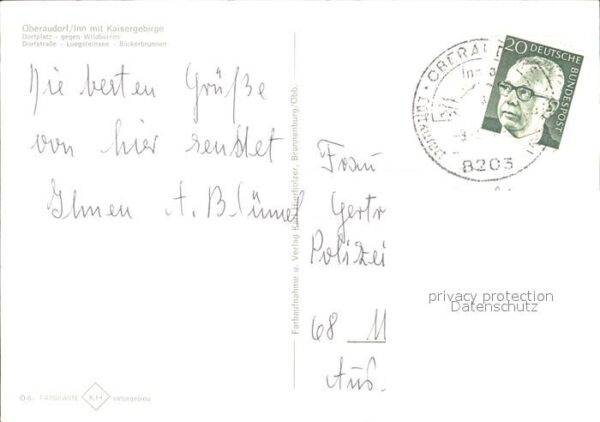 Oberaudorf/Inn mit Kaisergebirge
Dorfplatz - gegen Wildbarren
Dorfstraße - Luegsteinsee - Bickerbrunnen
Die besten Grüße
von hier sendet
Ihnen A. Blümel
Farbaufnahme u. Verlag Brannenburg/Obb.
20 DEUTSCHE BUNDESPOST
OBERAU
LUFTKUROR
8203
Frau
Gertr
Polizei
68 M
Aus.
privacy protection
Datenschutz
FARBKARTE KH naturgetreu